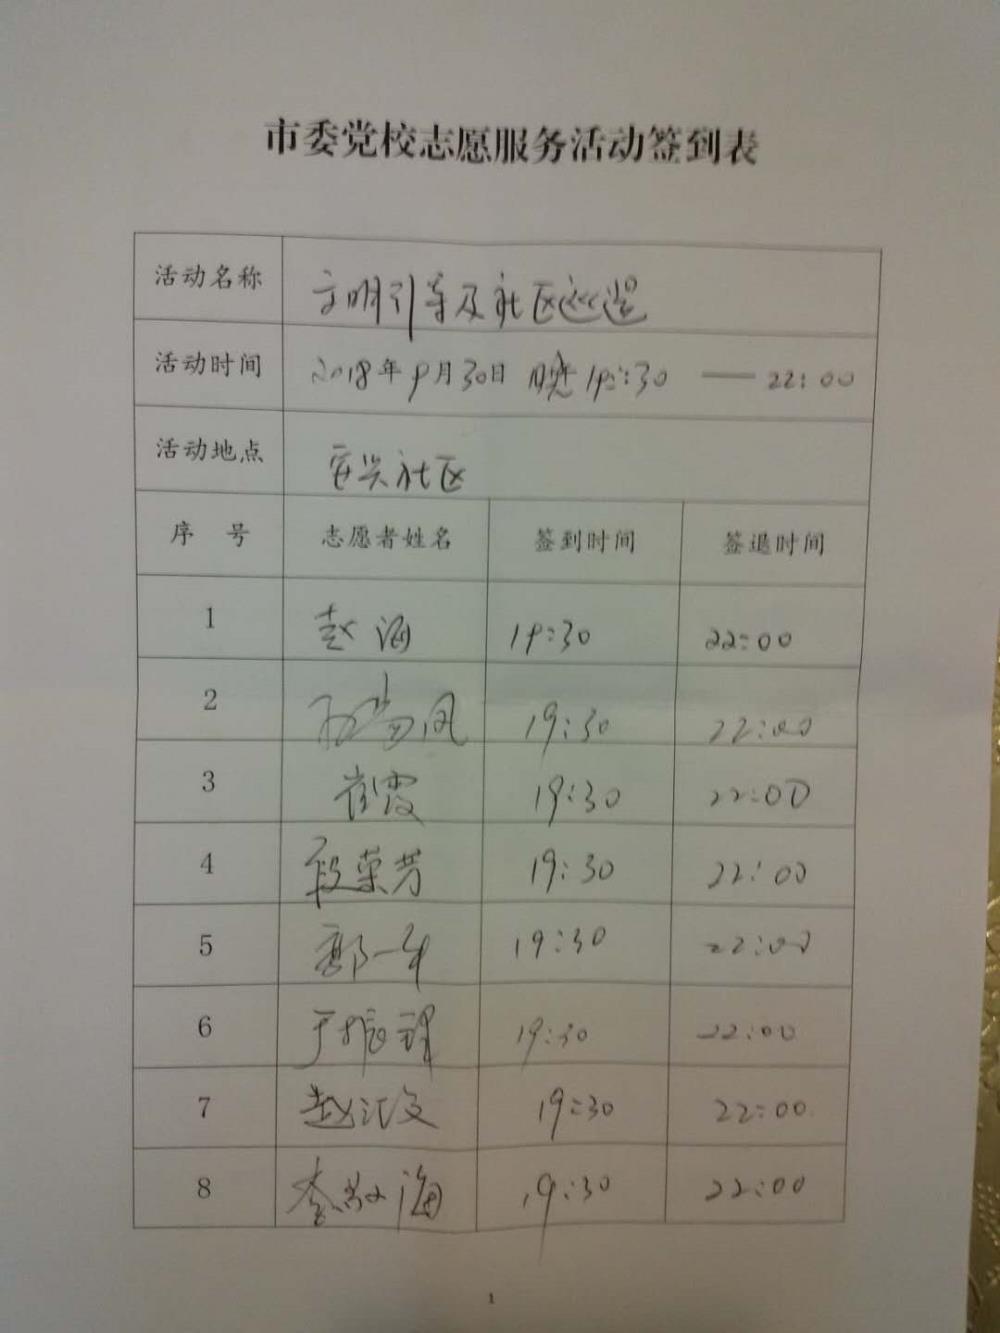 市委党校志愿服务活动签到表
活动名称 文明引导及社区巡逻
活动时间 2018年9月30日 晚19:30 —— 22:00
活动地点 安兴社区
序 号 志愿者姓名 签到时间 签退时间
1 赵海 19:30 22:00
2 19:30 22:00
3 崔霞 19:30 22:00
4 段荣芳 19:30 22:00
5 19:30 22:00
6 19:30 22:00
7 赵汉文 19:30 22:00
8 19:30 22:00
1